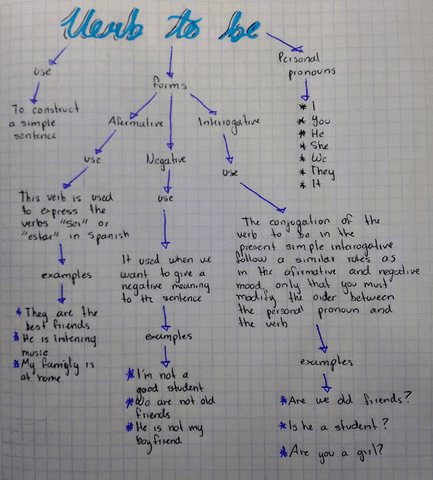 Verb to be
use
To construct
a simple
sentence
forms
Afirmative
use
This verb is used
to express the
verbs "Ser" or
"estar" in Spanish
examples
* They are the
best friends
* He is listening
music
* My family is
at home
Negative
use
It used when we
want to give a
negative meaning
to the sentence
examples
* I'm not a
good student
* We are not old
friends
* He is not my
boyfriend
Interogative
use
The conjugation of the
verb to be in the
present simple interogative
follow a similar rules as
in the afirmative and negative
mood, only that you must
modify the order between
the personal pronoun and
the verb
examples
* Are we old friends?
* Is he a student?
* Are you a girl?
Personal
pronouns
* I
* You
* He
* She
* We
* They
* It